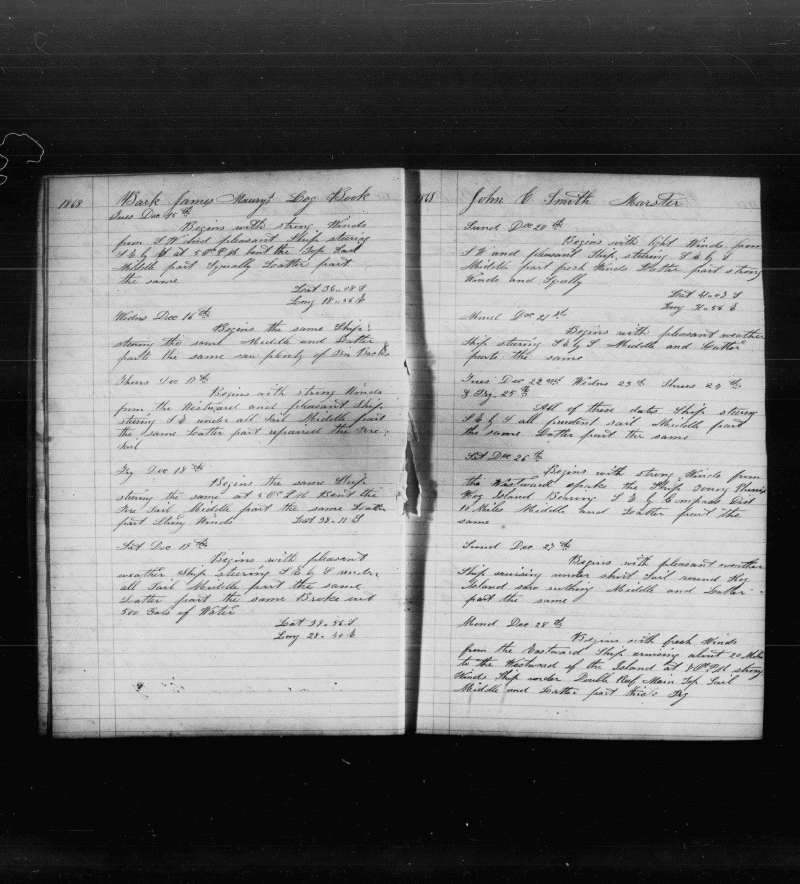 1868 Bark James Maury's Log Book
Tues Dec 15th
Begins with strong Winds
from S W and pleasant Ship steering
S E by at 5 Ock P M bent the Top Sail
Middle part Squally Latter part
the same
Lat 36-08 S
Long 18-56 E
Wedns Dec 16th
Begins the same Ship
steering the same Middle and Latter
parts the same saw plenty of Backs
Thurs Dec 17th
Begins with strong Winds
from the Westward and pleasant Ship
steering S E under all Sail Middle part
the same Latter part repaired the Fore
Sail
Fry Dec 18th
Begins the same Ship
steering the same at 5 Ock P M Bent the
Fore Sail Middle part the same Latter
part Strong Winds Lat 38-11 S
Sat Dec 19th
Begins with pleasant
weather Ship steering S E by S under
all Sail Middle part the same
Latter part the same Broke out
500 Gals of Water
Lat 39-56 S
Long 28-40 E
1868 John C Smith Marster
Sund Dec 20th
Begins with light Winds from
S W and pleasant Ship steering S E by S
Middle part fresh Winds Latter part strong
Winds and Squlty
Lat 41-03 S
Long 31-56 E
Mond Dec 21st
Begins with pleasant weather
Ship stering S E by S Middle and Latter
parts the same
Tues Dec 22nd Wedns 23d Thurs 24th
& Fry 25th
All of these dates Ship steering
S E by S all prudent sail Middle part
the same Latter part the same
Sat Dec 26th
Begins with strong Winds from
the Westward spoke the Ship
Hog Island Bearing S E by Compass Dist
10 Miles Middle and Latter part the
same
Sund Dec 27th
Begins with pleasant weather
Ship cruising under short Sail round Hog
Island saw nothing Middle and Latter
part the same
Mond Dec 28th
Begins with fresh Winds
from the Eastward Ship cruising about 20 Miles
to the Westward of the Island at 8 Ock P M strong
Winds Ship under Double Reef Main Top Sail
Middle and Latter part Fog